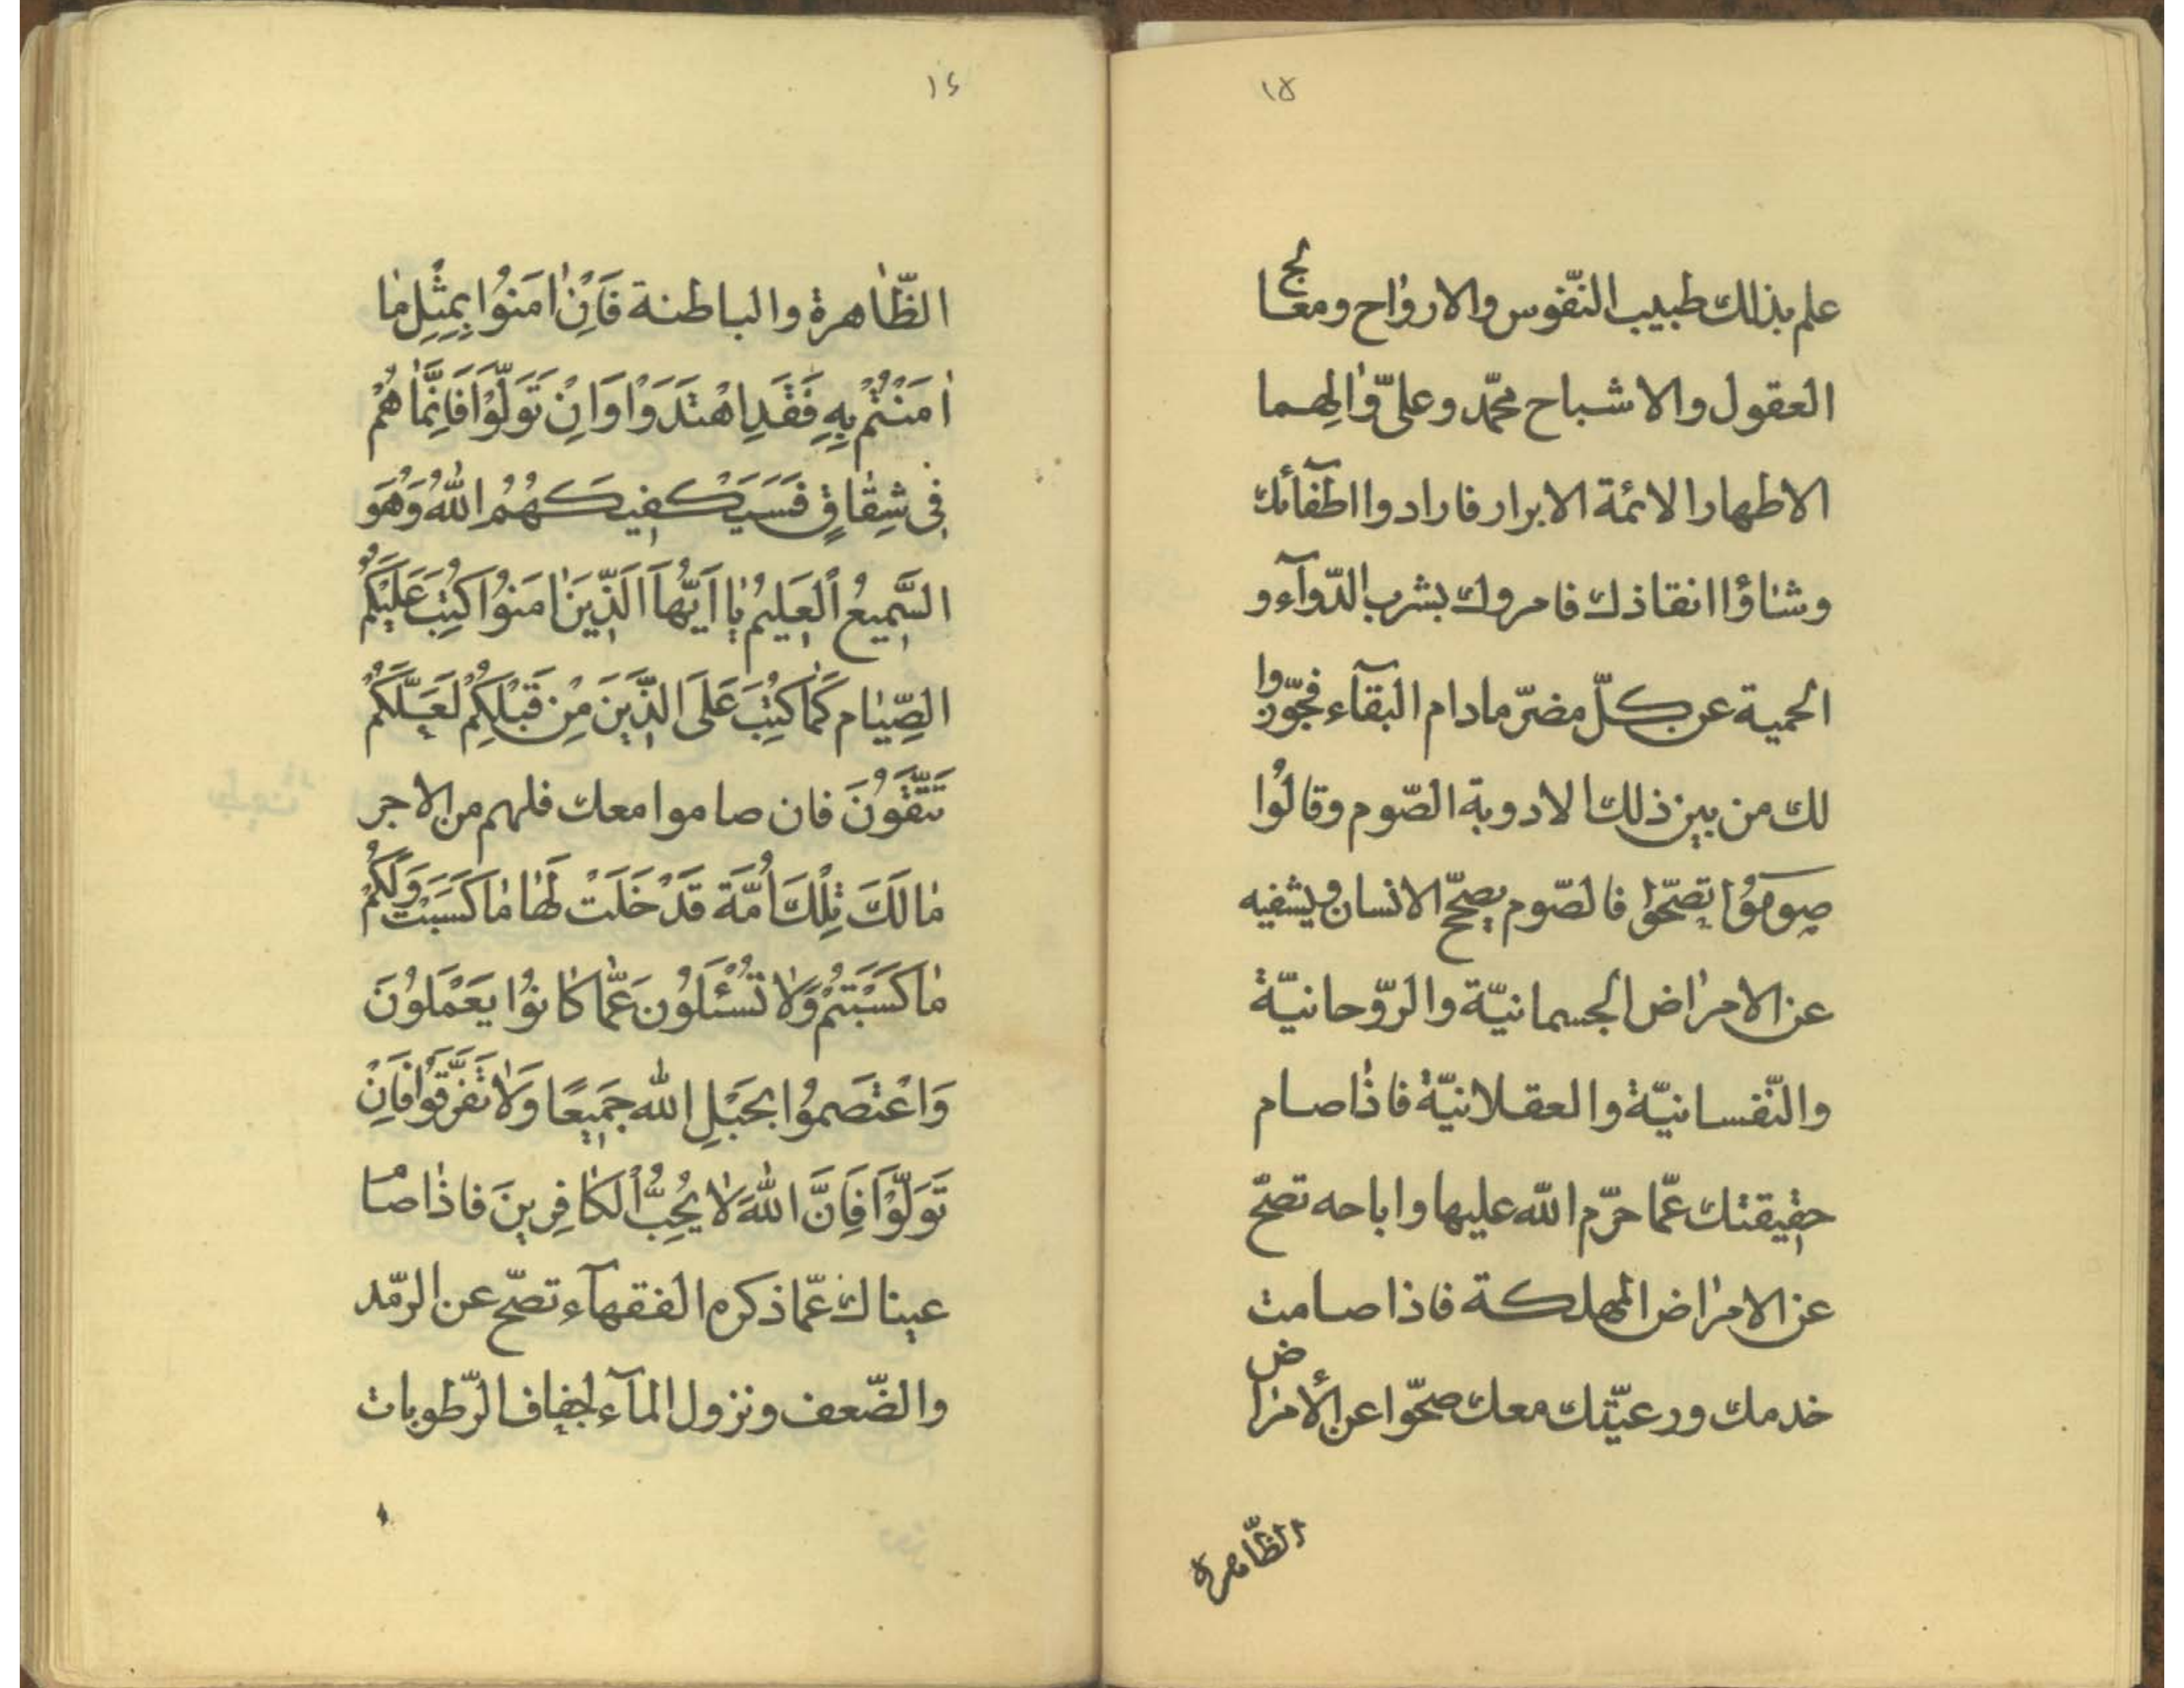 ١٥
علم بذلك طبيب النّفوس والارواح ومعالج
العقول والاشباح محمّد وعلىّ وٰالِهما
الاطهار الائمة الابرار فارادوا اطفآئك
وشاؤا انقاذك فامروك بشرب الدّوآء و
الحمية عن كلّ مضرّ مادام البقآء فجوّزوا
لك من بين ذلك الادوية الصّوم وقالُوا
صومُوُا تصحّوا فالصّوم يصحّح الانسان ويشفيه
عن الامراض الجسمانيّة والرّوحانيّة
والنّفسانيّة والعقلانيّة فاذٰا صام
حقيقتك عمّا حرّم الله عليها واباحه تصحّ
عن الامراض المهلكة فاذا صامت
خدمك ورعيّتك معك صحّوا عن الأمراض
الظّاهرة
١٤
الظّاهرة والباطنة فَاِنْ اٰمَنوُا بِمِثْلِ مٰا
اٰمَنْتُمْ بِهِ فَقَدِ اهْتَدَوْا وَاِنْ تَوَلَّوْا فَاِنَّمٰا هُمْ
فِى شِقٰاقٍ فَسَيَكْفيكَهُمُ اللّٰهُ وَهُوَ
السَّمِيعُ الْعَلِيمُ يٰا اَيُّهاَ الَّذِينَ اٰمَنوُا كُتِبَ عَلَيْكُمُ
الصِّيٰام كَمٰا كُتِبَ عَلَى الَّذِينَ مِنْ قَبْلِكُمْ لَعَلَّكُمْ
تَتَّقُونَ فان صاموا معك فلهم من الاجر
مٰا لَكَ تِلْكَ اُمَّة قَدْ خَلَتْ لَهٰا مٰا كَسَبَتْ وَلَكُمْ
مٰا كَسَبْتُمْ وَلٰا تُسْئَلُونَ عَمّٰا كٰانوُا يَعْمَلُونَ
وَاعْتَصِموُا بِحَبْلِ اللّٰه جَمِيعًا وَلٰا تَفَرَّقُوا فَاِنْ
تَوَلَّوْا فَاِنَّ اللّٰهَ لٰا يُحِبُّ الْكٰافِرِينَ فاذٰا صام
عيناك عمّا ذكره الفقهآء تصحّ عن الرّمد
والضّعف ونزول المآء لجفاف الرّطوبات